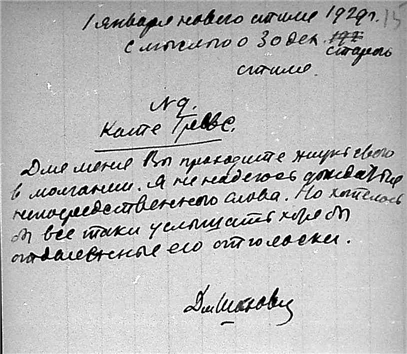 1 января нового стиля 1929 г. 15
с мыслью о 30 дек. старого
стиля.
№ 9.
Кате Греввс.
Для меня Вы проходите жизнь свою
в молчании. Я не надеюсь дождаться
непосредственного слова. Но хотелось
бы все таки услышать хоть бы
отдаленные его отголоски.